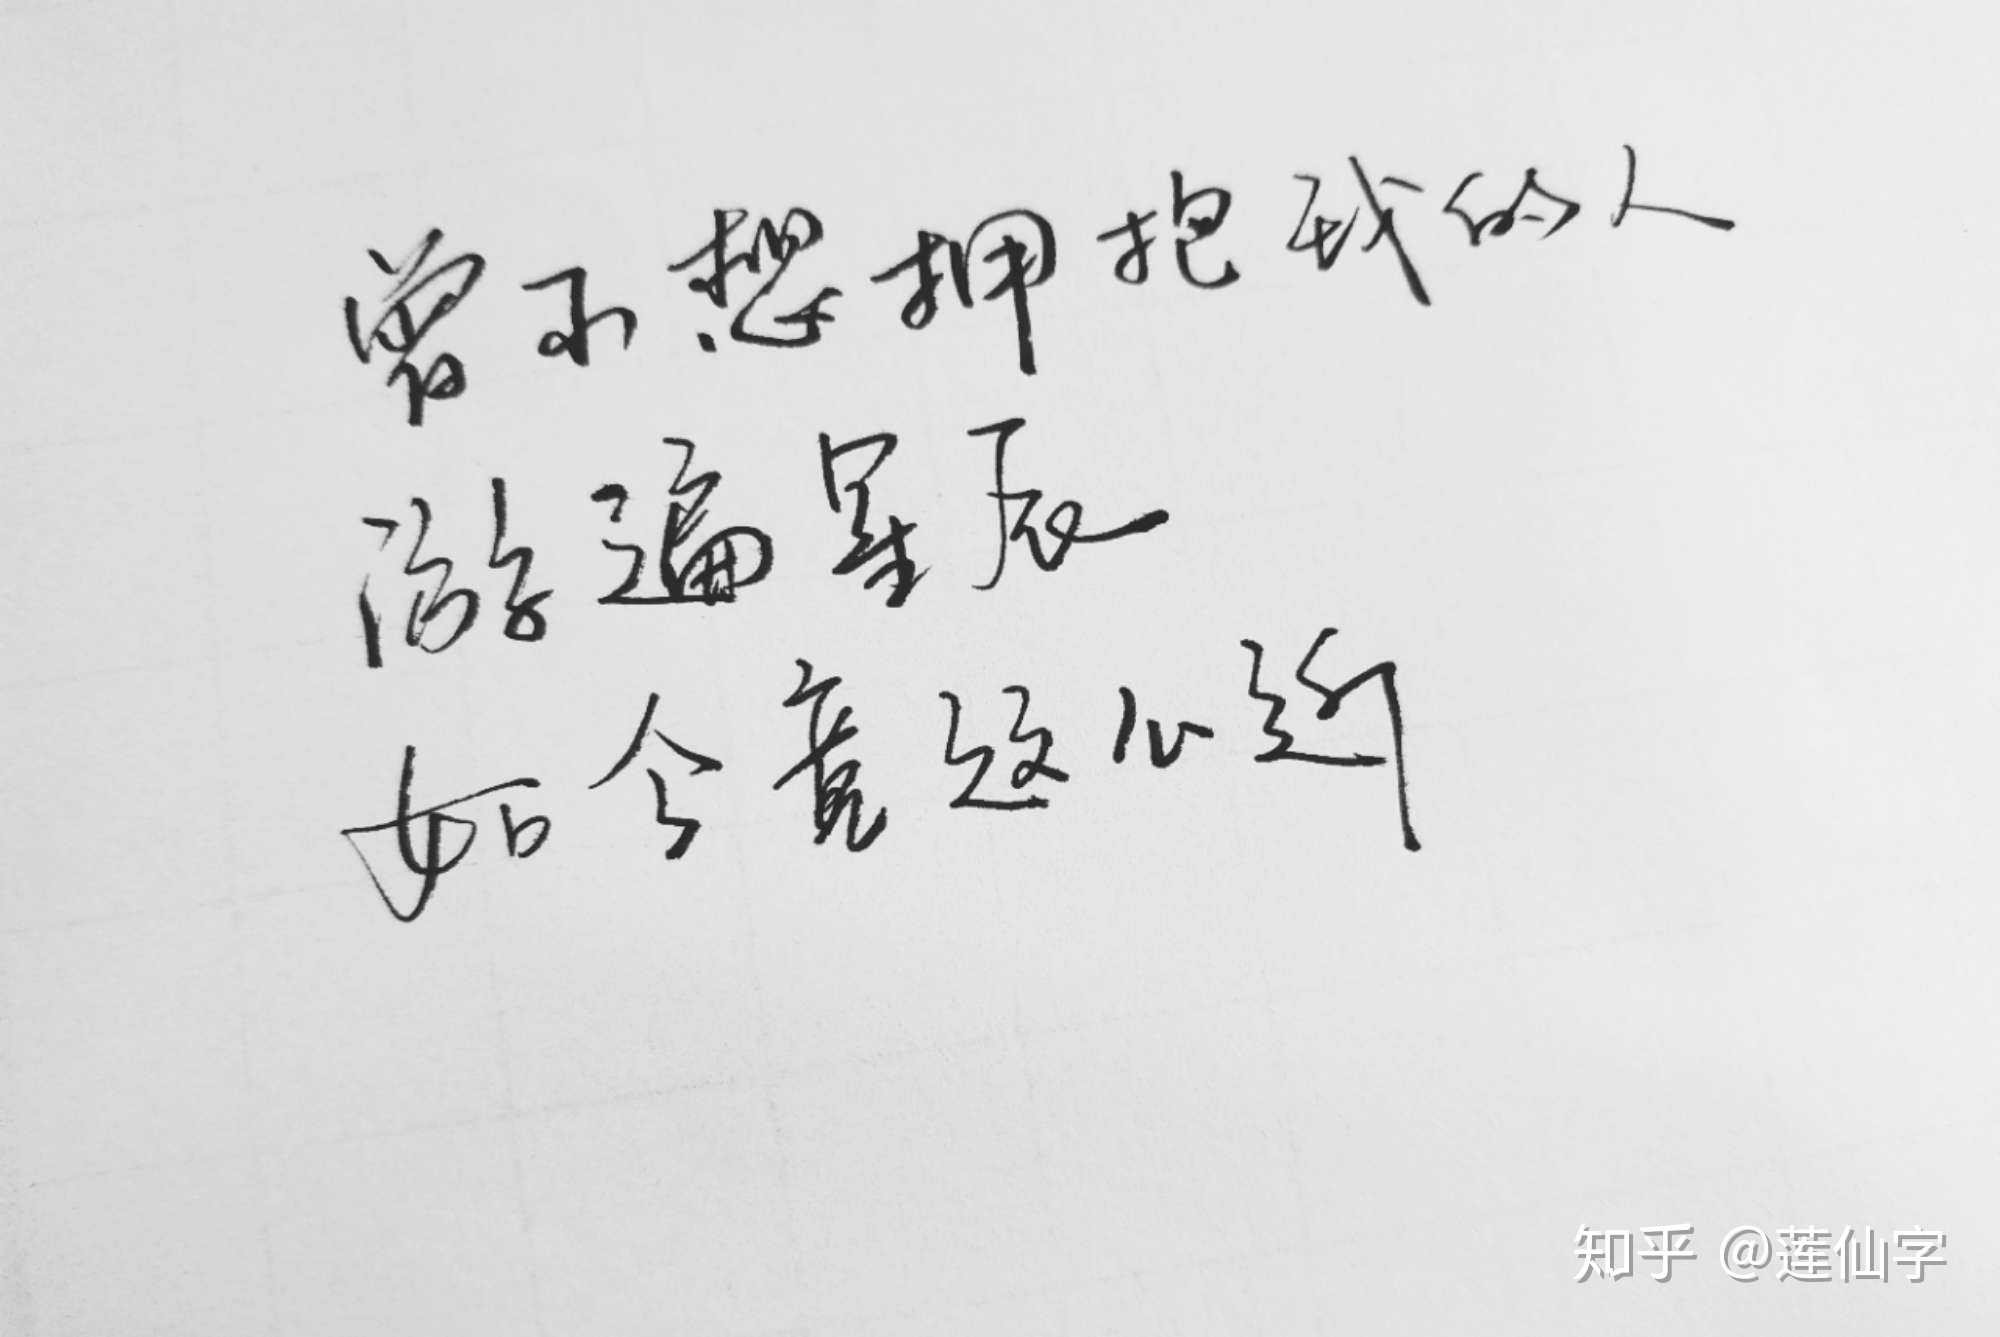 曾不想拥抱我的人
游遍星辰
如今竟这么近
知乎 @莲仙字